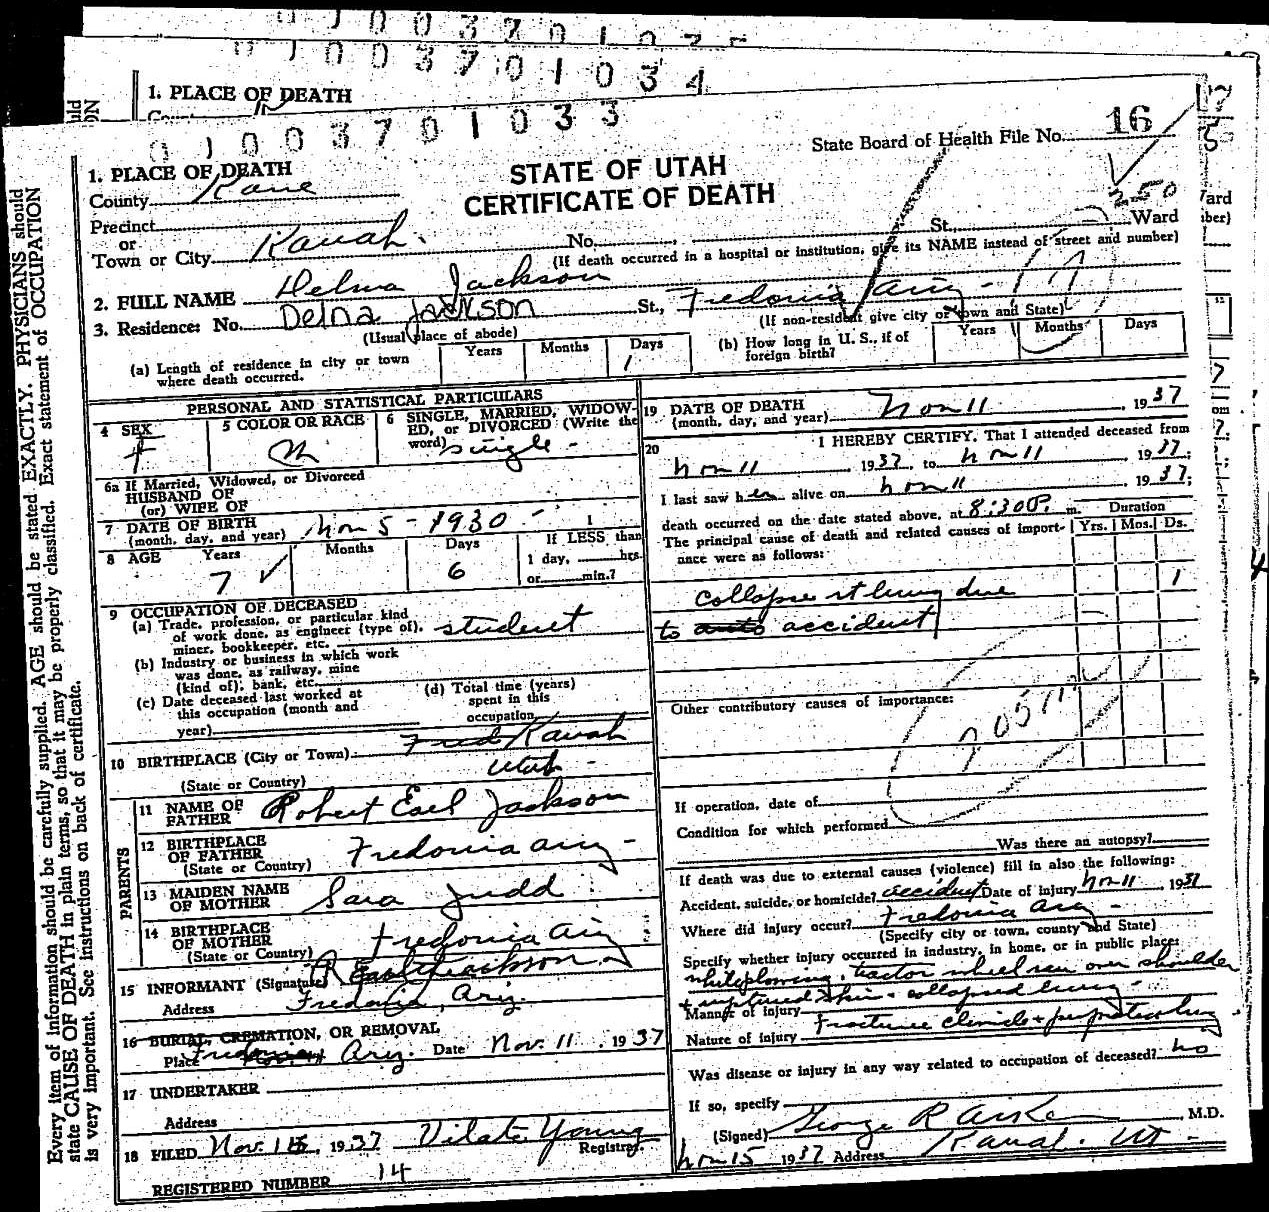 0 1 0 0 3 7 0 1 0 3
0 1 0 0 3 7 0 1 0 3 4
1. PLACE OF DEATH
0 1 0 0 3 7 0 1 0 3 3
State Board of Health File No. 16
1. PLACE OF DEATH
STATE OF UTAH
CERTIFICATE OF DEATH
County Kane
250
Precinct
or
Town or City Kanab. No. St., Ward
(If death occurred in a hospital or institution, give its NAME instead of street and number)
2. FULL NAME Delma Jackson
3. Residence: No. Delna Jackson St., Fredonia Ariz-
(Usual place of abode) (If non-resident give city or town and State)
(a) Length of residence in city or town where death occurred. Years Months Days 1
(b) How long in U. S., if of foreign birth? Years Months Days
PERSONAL AND STATISTICAL PARTICULARS
4 SEX f
5 COLOR OR RACE
6 SINGLE, MARRIED, WIDOWED, or DIVORCED (Write the word) single -
6a If Married, Widowed, or Divorced
HUSBAND OF
(or) WIFE OF
7 DATE OF BIRTH
(month, day, and year) Nov 5 - 1930 -
8 AGE Years 7 Months Days 6 If LESS than 1 day, hrs. or min.?
9 OCCUPATION OF DECEASED
(a) Trade, profession, or particular kind of work done, as engineer (type of), miner, bookkeeper, etc. student
(b) Industry or business in which work was done, as railway, mine (kind of); bank, etc.
(c) Date deceased last worked at this occupation (month and year)
(d) Total time (years) spent in this occupation
10 BIRTHPLACE (City or Town) Fred Kanab
(State or Country) Utah -
PARENTS
11 NAME OF FATHER Robert Earl Jackson
12 BIRTHPLACE OF FATHER
(State or Country) Fredonia Ariz -
13 MAIDEN NAME OF MOTHER Sara Judd
14 BIRTHPLACE OF MOTHER
(State or Country) Fredonia Ariz
15 INFORMANT (Signature) R Earl Jackson
Address Fredonia, Ariz.
16 BURIAL, CREMATION, OR REMOVAL
Place Ariz. Date Nov. 11, 1937
17 UNDERTAKER
Address
18 FILED Nov. 1937 Vilate Young
Registrar.
REGISTERED NUMBER 14
19 DATE OF DEATH
(month, day, and year) Nov 11, 1937
20 I HEREBY CERTIFY, That I attended deceased from
Nov 11 1937, to Nov 11 1937;
I last saw h er alive on Nov 11, 1937;
death occurred on the date stated above, at 8:30 P. m.
The principal cause of death and related causes of importance were as follows:
Duration
Yrs. Mos. Ds.
1
collapse lung due
to auto accident
Other contributory causes of importance:
If operation, date of
Condition for which performed
Was there an autopsy?
If death was due to external causes (violence) fill in also the following:
Accident, suicide, or homicide? accident Date of injury Nov 11 1937
Where did injury occur? Fredonia Ariz -
(Specify city or town, county and State)
Specify whether injury occurred in industry, in home, or in public place:
while plowing, tractor wheel ran over shoulder
+ ruptured skin + collapsed lung -
Manner of injury
Nature of injury Fracture clavicle + lung
Was disease or injury in any way related to occupation of deceased? no
If so, specify
(Signed) George R Aiken M.D.
Nov 15 1937 Address Kanab. Ut -
Every item of information should be carefully supplied. AGE should be stated EXACTLY. PHYSICIANS should
state CAUSE OF DEATH in plain terms, so that it may be properly classified. Exact statement of OCCUPATION
is very important. See instructions on back of certificate.